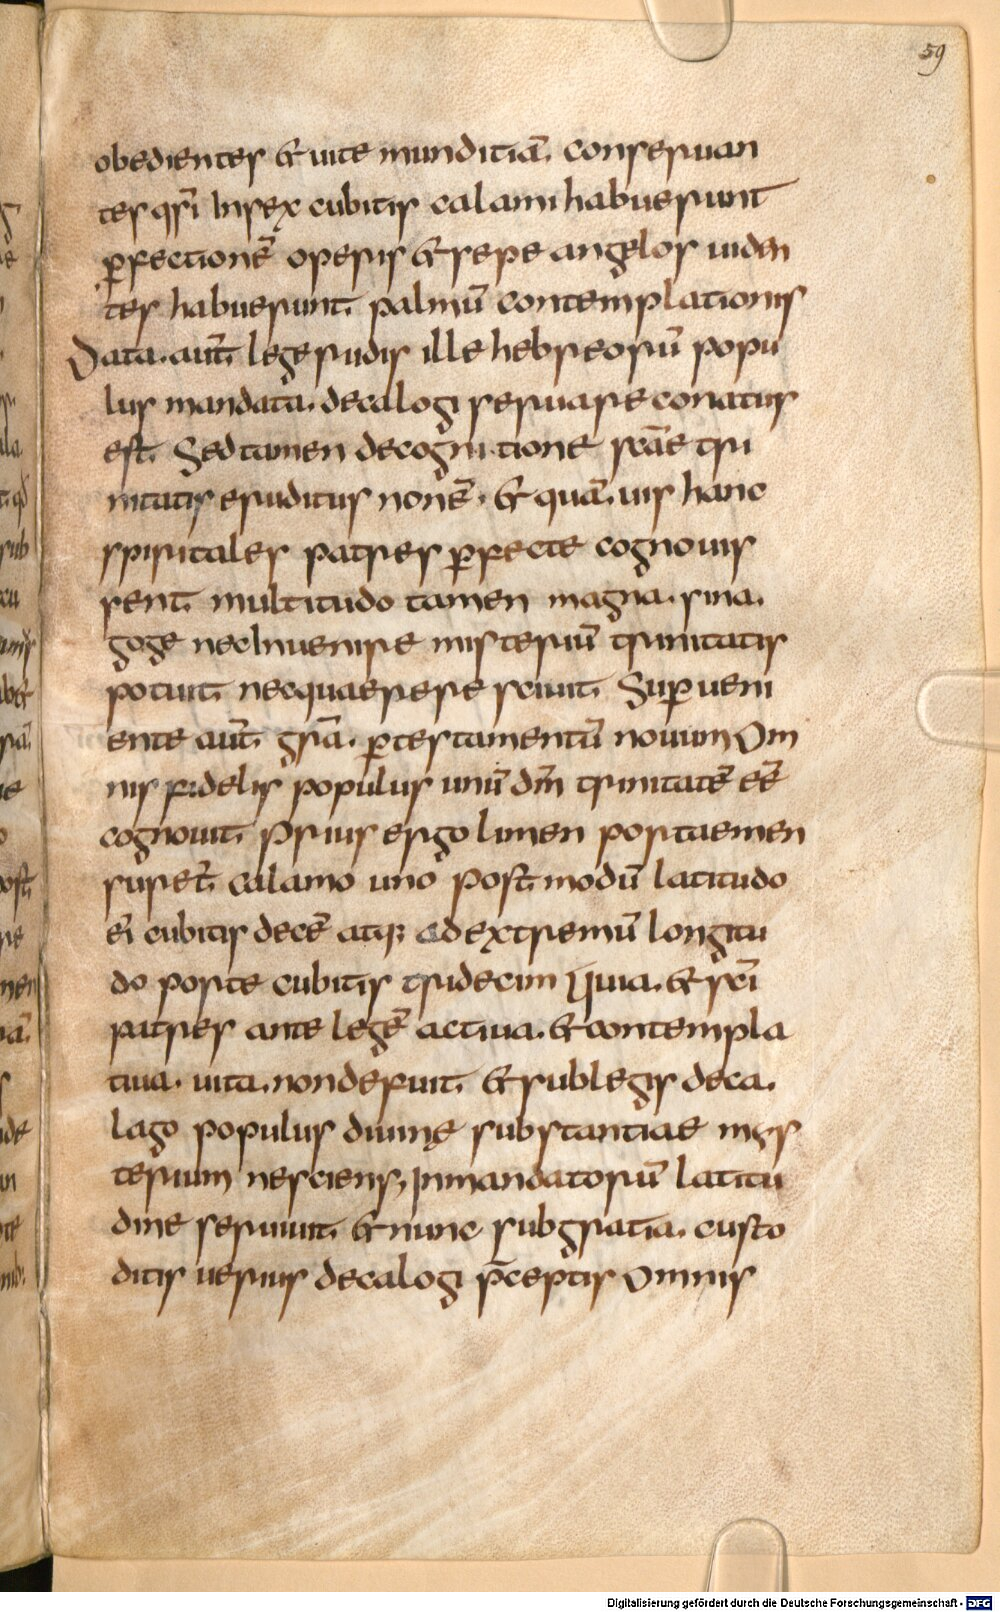 59
obedientes & uite munditiā. conseruan
tes qsi In sex cubitis calami habuerunt
ꝑfectionē operis & sepe angelos uiden
tes habuerunt. palmū contemplationis
Data. aut̄. lege rudis ille hebreorū popu
lus mandata. decalogi seruare conatus
est. Sed tamen de cognitione scāe tri
nitatis eruditus non ē. & quā. uis hanc
spiritales patres ꝑfecte cognouis
sent. multitudo tamen magna. sina.
goge nec Inuenire misterium trinitatis
potuit. nec quaerere sciuit. Suꝑueni
ente aut̄. grā. ꝑ testamentū nouum Om
nis fidelis populus unū dm̄ trinitatē eē
cognouit. Prius ergo limen portae men
suret̄. calamo uno post modū latitudo
ei cubitis decē atq; ad extremū longitu
do porte cubitis tridecim Quia. & sci
patres ante legē actiua. & contempla
tiua. uita. non defuit. & sub legis deca.
lago populus diuinę substantiae mys
terium nesciens, In mandatorū latitu
dine seruiuit. & nunc sub gratia. custo
ditis uerius decalogi p̄ceptis omnis
Digitalisierung gefördert durch die Deutsche Forschungsgemeinschaft - DFG